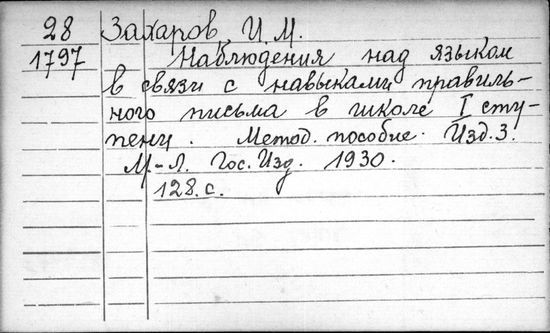 28 Захаров, И. М.
1797 Наблюдения над языком
в связи с навыками правиль-
ного письма в школе I сту-
пени. Метод. пособие. Изд. 3.
М.-Л. Гос. Изд. 1930.
128 с.